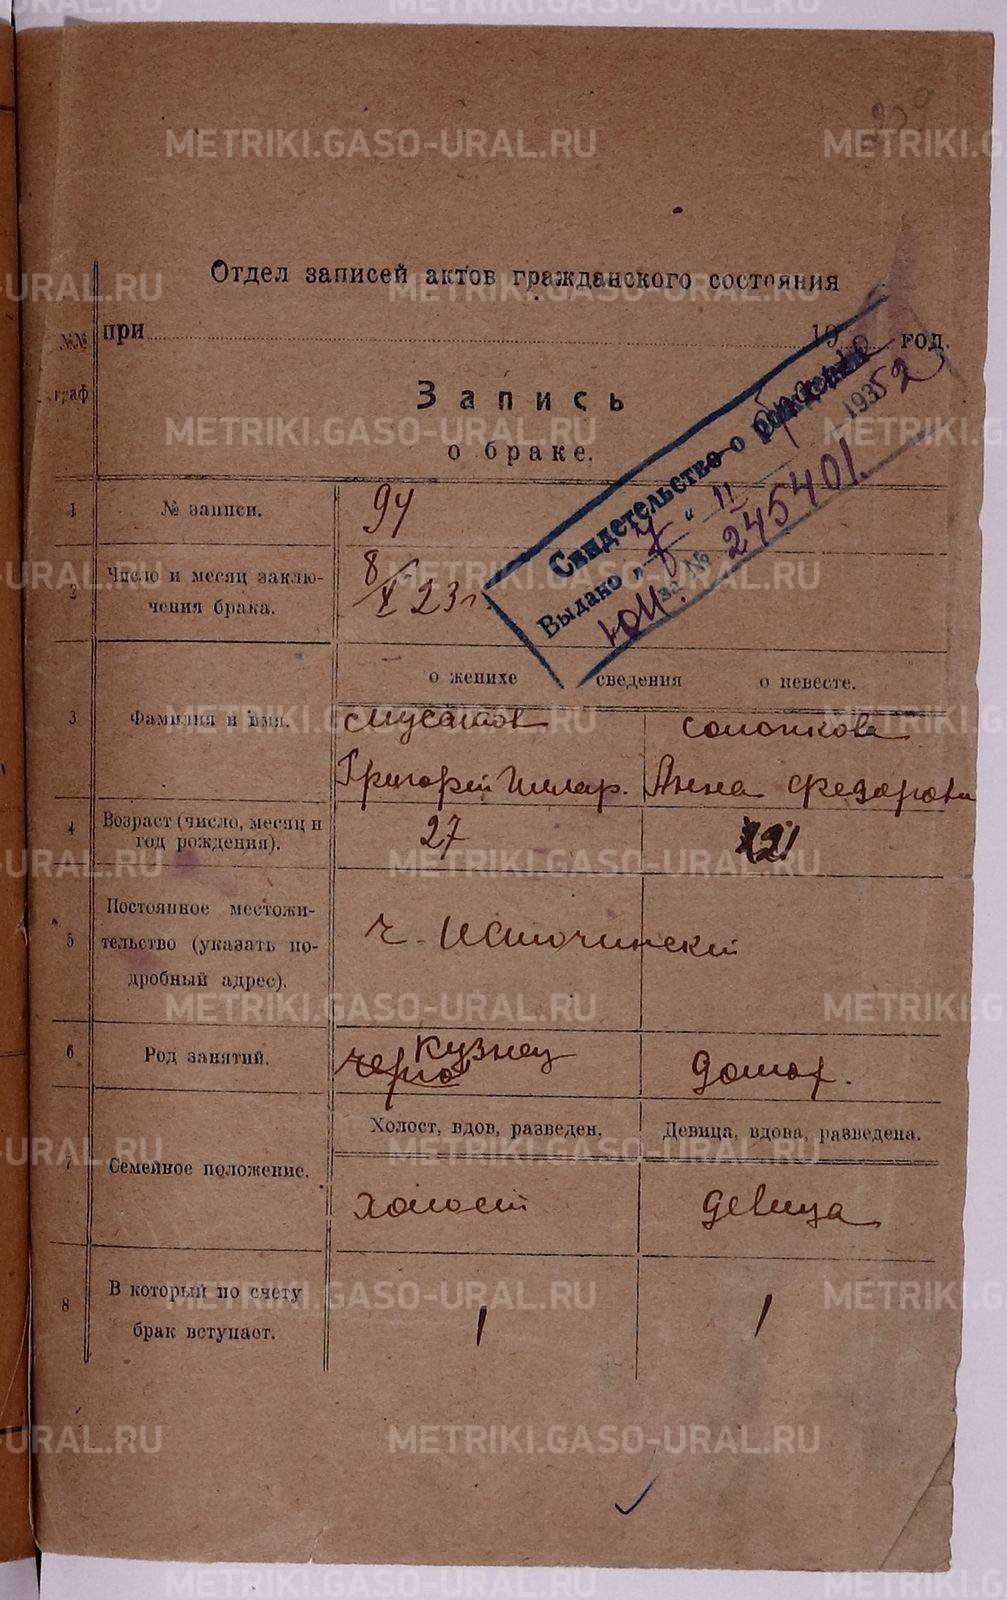 209
Отдел записей актов гражданского состояния
при 19 год.
№№ граф
Запись
о браке.
Свидетельство о рождении браке
Выдано „7" II 1952
за № 245401
ЮИ
1 № записи. 94
2 Число и месяц заклю-
чения брака. 8/X 23 г.
о женихе сведения о невесте.
3 Фамилия и имя. Мусатов Солопкова
Григорий Иллар. Анна Федоровн
4 Возраст (число, месяц и
год рождения). 27 21
5 Постоянное местожи-
тельство (указать по-
дробный адрес). г. Источинский
6 Род занятий. Черно Кузнец Домох.
Холост, вдов, разведен. Девица, вдова, разведена.
7 Семейное положение. Холост Девица
8 В который по счету
брак вступает. 1 1
METRIKI.GASO-URAL.RU